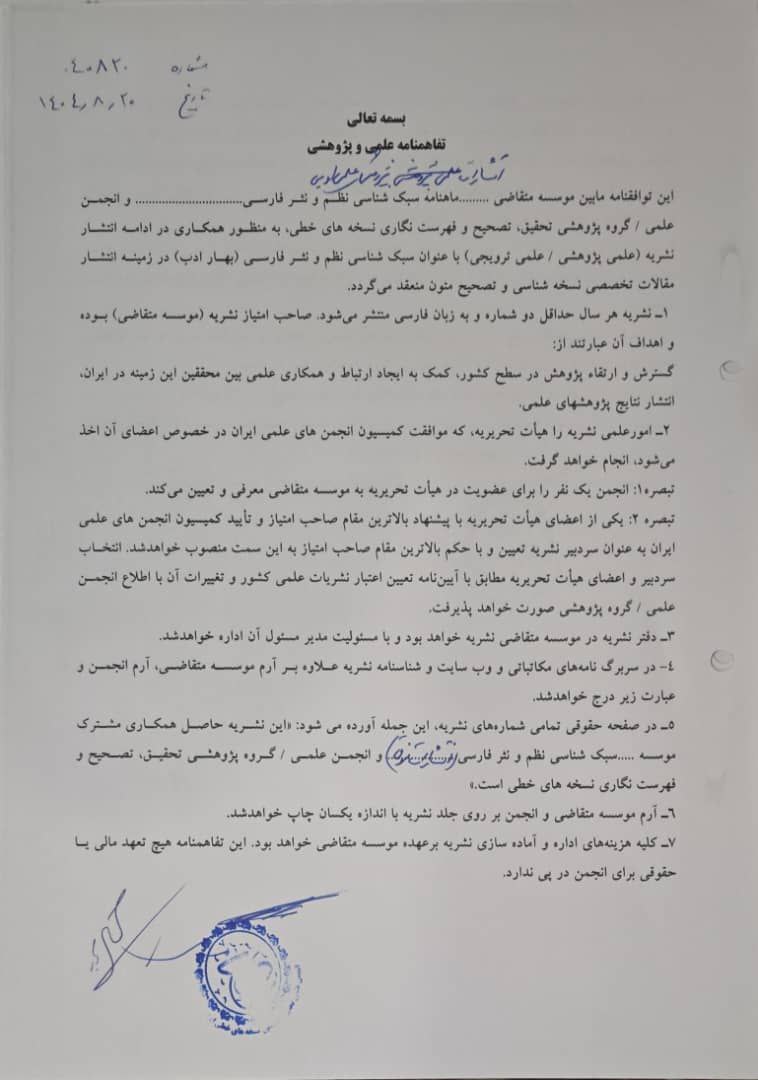 شماره ۰۴۰۸۲۰
تاریخ ۱۴۰۴٫۸٫۲۰
بسمه تعالی
تفاهمنامه علمی و پژوهشی
انتشارات علمی
این توافقنامه مابین موسسه متقاضی .........ماهنامه سبک شناسی نظم و نثر فارسی................................ و انجمن
علمی / گروه پژوهشی تحقیق، تصحیح و فهرست نگاری نسخه های خطی، به منظور همکاری در ادامه انتشار
نشریه (علمی پژوهشی / علمی ترویجی) با عنوان سبک شناسی نظم و نثر فارسی (بهار ادب) در زمینه انتشار
مقالات تخصصی نسخه شناسی و تصحیح متون منعقد می‌گردد.
۱ـ نشریه هر سال حداقل دو شماره و به زبان فارسی منتشر می‌شود. صاحب امتیاز نشریه (موسسه متقاضی) بوده
و اهداف آن عبارتند از:
گسترش و ارتقاء پژوهش در سطح کشور، کمک به ایجاد ارتباط و همکاری علمی بین محققین این زمینه در ایران،
انتشار نتایج پژوهشهای علمی.
۲ـ امورعلمی نشریه را هیأت تحریریه، که موافقت کمیسیون انجمن های علمی ایران در خصوص اعضای آن اخذ
می‌شود، انجام خواهد گرفت.
تبصره۱: انجمن یک نفر را برای عضویت در هیأت تحریریه به موسسه متقاضی معرفی و تعیین می‌کند.
تبصره ۲: یکی از اعضای هیأت تحریریه با پیشنهاد بالاترین مقام صاحب امتیاز و تأیید کمیسیون انجمن های علمی
ایران به عنوان سردبیر نشریه تعیین و با حکم بالاترین مقام صاحب امتیاز به این سمت منصوب خواهدشد. انتخاب
سردبیر و اعضای هیأت تحریریه مطابق با آیین‌نامه تعیین اعتبار نشریات علمی کشور و تغییرات آن با اطلاع انجمن
علمی / گروه پژوهشی صورت خواهد پذیرفت.
۳ـ دفتر نشریه در موسسه متقاضی نشریه خواهد بود و با مسئولیت مدیر مسئول آن اداره خواهدشد.
۴- در سربرگ نامه‌های مکاتباتی و وب سایت و شناسنامه نشریه علاوه بر آرم موسسه متقاضی، آرم انجمن و
عبارت زیر درج خواهدشد.
۵ـ در صفحه حقوقی تمامی شماره‌های نشریه، این جمله آورده می شود: «این نشریه حاصل همکاری مشترک
موسسه .....سبک شناسی نظم و نثر فارسی و انجمن علمی / گروه پژوهشی تحقیق، تصحیح و
فهرست نگاری نسخه های خطی است.»
۶ـ آرم موسسه متقاضی و انجمن بر روی جلد نشریه با اندازه یکسان چاپ خواهدشد.
۷ـ کلیه هزینه‌های اداره و آماده سازی نشریه برعهده موسسه متقاضی خواهد بود. این تفاهمنامه هیچ تعهد مالی یا
حقوقی برای انجمن در پی ندارد.